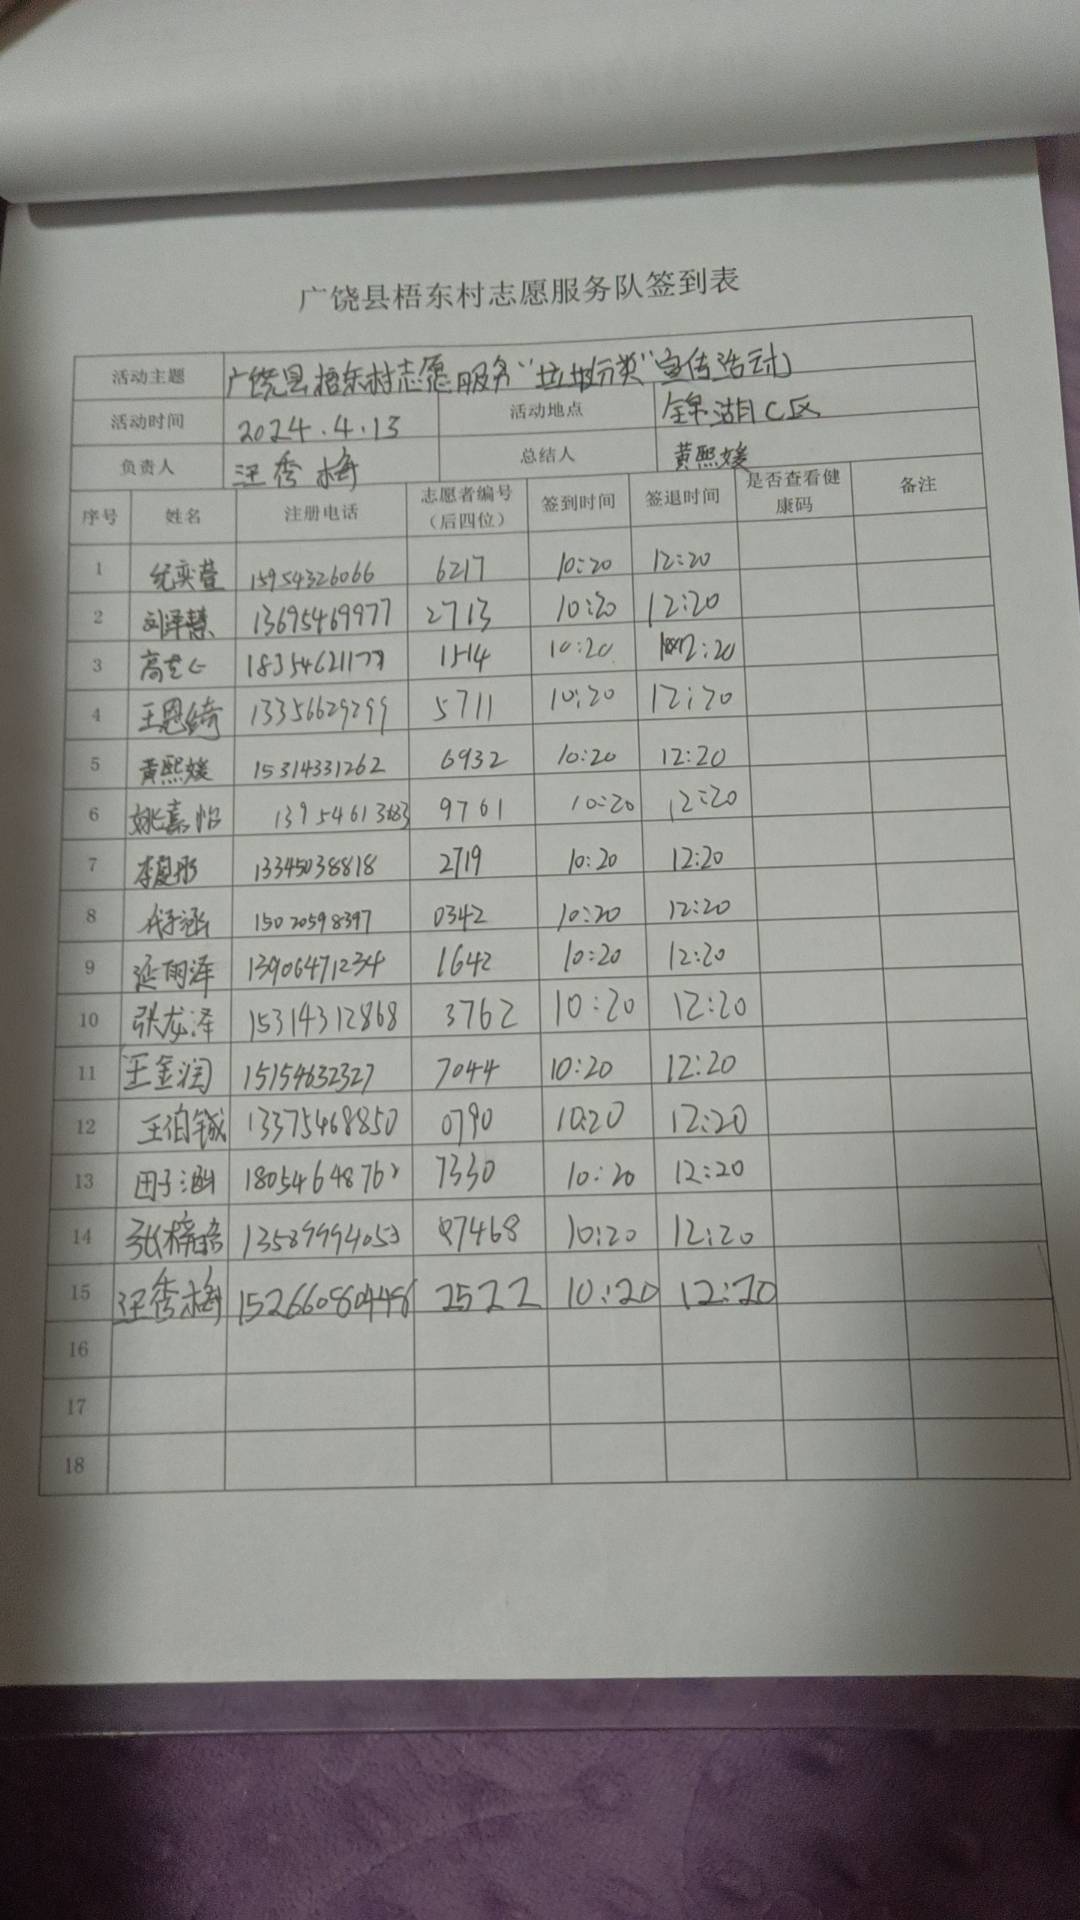 广饶县梧东村志愿服务队签到表
活动主题 广饶县梧东村志愿服务"垃圾分类"宣传活动
活动时间 2024.4.13 活动地点 锦湖C区
负责人 汪秀梅 总结人 黄熙媛
序号 姓名 注册电话 志愿者编号（后四位） 签到时间 签退时间 是否查看健康码 备注
1 纪奕萱 15954326066 6217 10:20 12:20
2 刘泽慧 13695469977 2713 10:20 12:20
3 1514 10:20 12:20
4 王恩绮 13356629299 5711 10:20 12:20
5 黄熙媛 15314331262 6932 10:20 12:20
6 姚嘉怡 9761 10:20 12:20
7 13345038818 2719 10:20 12:20
8 15020598397 0342 10:20 12:20
9 延雨泽 13906471234 1642 10:20 12:20
10 张龙泽 15314312868 3762 10:20 12:20
11 王金润 15154632327 7044 10:20 12:20
12 王伯铖 13375468850 0790 10:20 12:20
13 田子涵 7330 10:20 12:20
14 13589994053 7468 10:20 12:20
15 汪秀梅 15266080448 2522 10:20 12:20
16
17
18